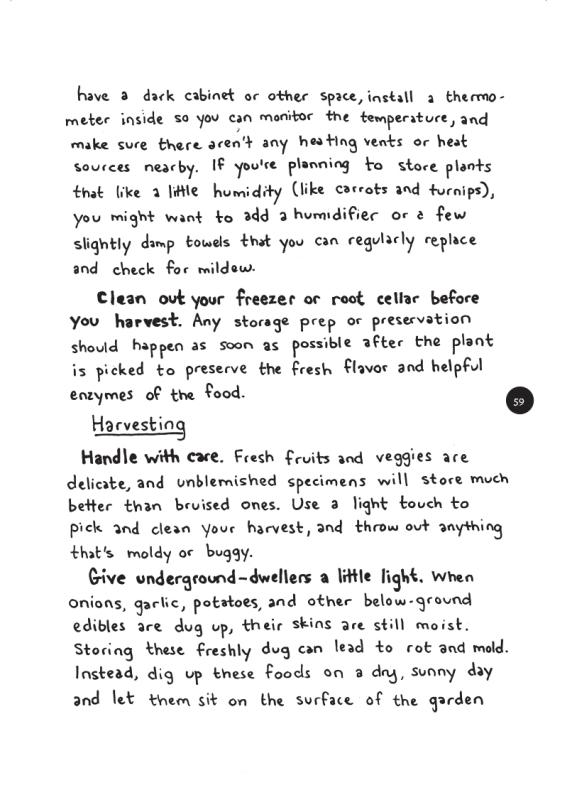 have a dark cabinet or other space, install a thermo-
meter inside so you can monitor the temperature, and
make sure there aren't any heating vents or heat
sources nearby. If you're planning to store plants
that like a little humidity (like carrots and turnips),
you might want to add a humidifier or a few
slightly damp towels that you can regularly replace
and check for mildew.
Clean out your freezer or root cellar before
you harvest. Any storage prep or preservation
should happen as soon as possible after the plant
is picked to preserve the fresh flavor and helpful
enzymes of the food.
59
Harvesting
Handle with care. Fresh fruits and veggies are
delicate, and unblemished specimens will store much
better than bruised ones. Use a light touch to
pick and clean your harvest, and throw out anything
that's moldy or buggy.
Give underground-dwellers a little light. When
onions, garlic, potatoes, and other below-ground
edibles are dug up, their skins are still moist.
Storing these freshly dug can lead to rot and mold.
Instead, dig up these foods on a dry, sunny day
and let them sit on the surface of the garden